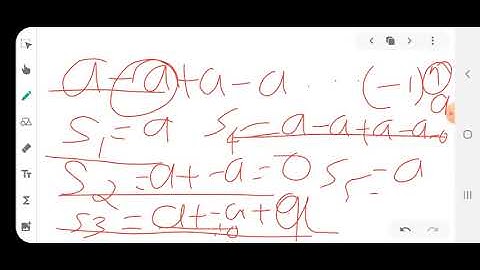 a - a + a - a . . . (-1)^n a
S1 = a S4 = a - a + a - a = 0
S2 = a + -a = 0 S5 = a
S3 = a + -a + a